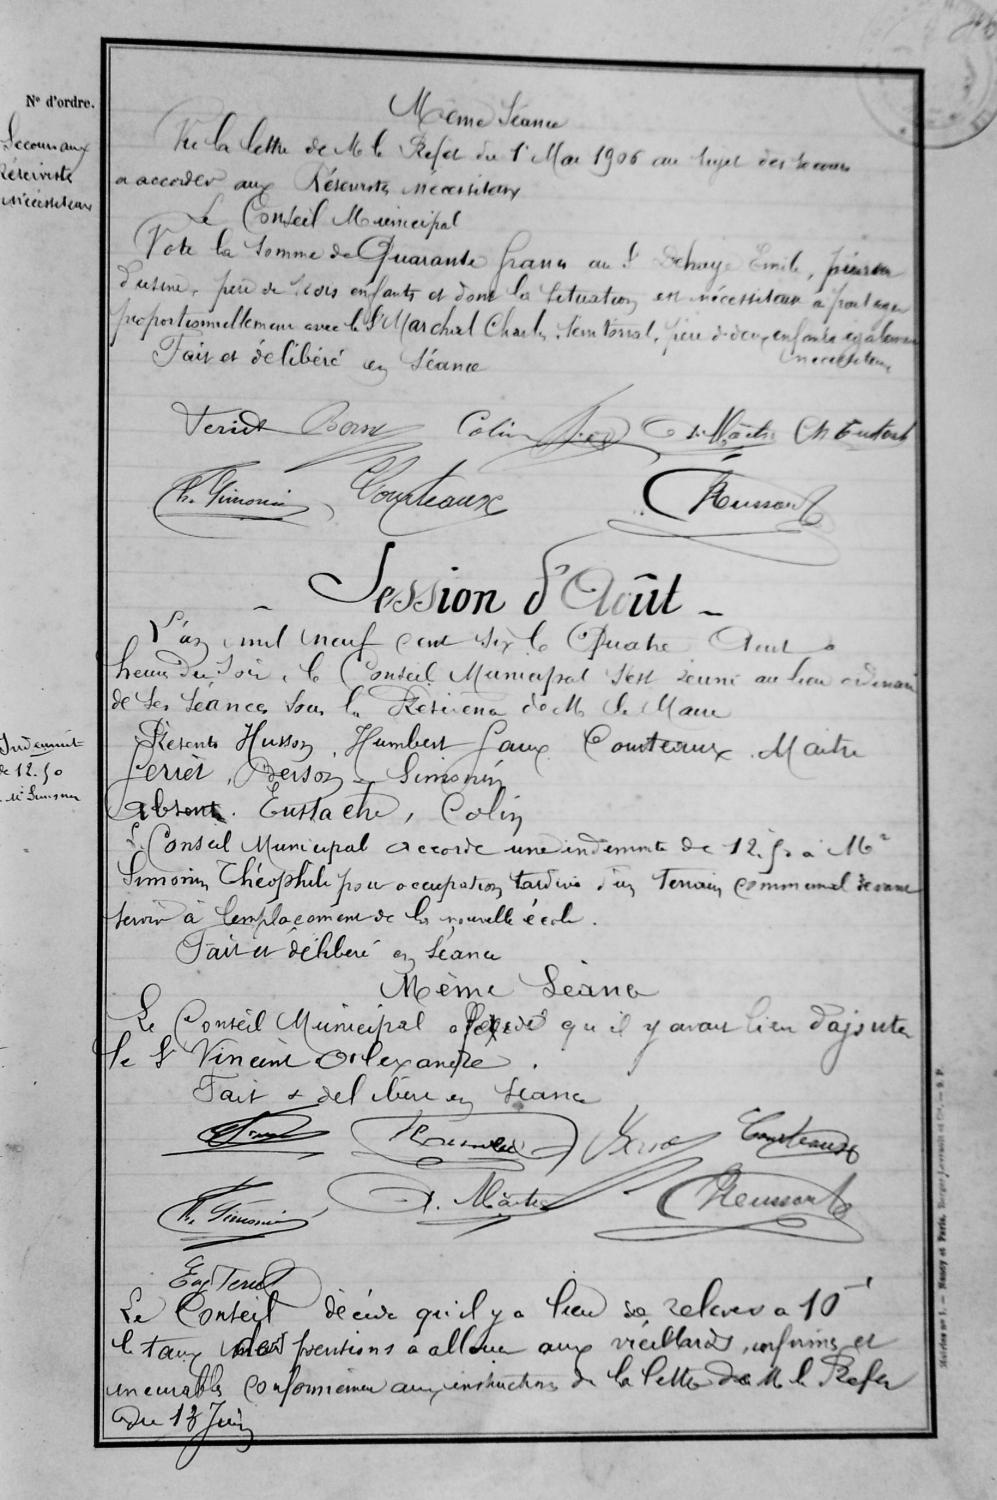 N° d'ordre.
Secours aux
Réservistes
nécessiteux
Même Séance
Vu la lettre de M le Préfet du 1er Mai 1906 au sujet des secours
a accorder aux Réservistes nécessiteux
Le Conseil Municipal
Vote la somme de Quarante francs au Sr Dehaye Emile,
d'usine, père de trois enfants et dont la situation est nécessiteuse a partager
proportionnellement avec le Sr Marchal Charles, territorial, père de deux enfants également
nécessiteux
Fait et délibéré en Séance
Feriet Colin Maitre Ch Eustache
Th. Simonin Courteaux C Husson
Session d'Août
L'an mil neuf cent six le Quatre Aout a
heures du Soir, le Conseil Municipal s'est réuni au lieu ordinaire
de ses séances sous la Présidence de M le Maire
Présents Husson, Humbert Courteaux, Maitre
Feriet, Simonin
Indemnité
de 12.50
Mr Simonin
Absents. Eustache, Colin
Le Conseil Municipal accorde une indemnité de 12.50 à Mr
Simonin Théophile pour occupation tardive d'un terrain communal devant
servir à l'emplacement de la nouvelle école.
Fait et délibéré en Séance
Même Séance
Le Conseil Municipal a décidé qu'il y avait lieu d'ajouter
le Sr Vincent Alexandre.
Fait & délibéré en Séance
Courteaux
Th. Simonin Maitre C Husson
Eug Feriet
Le Conseil décide qu'il y a lieu de relever a 10f
le taux des pensions a allouer aux vieillards, infirmes et
incurables conformément aux instructions de la lettre de M le Préfet
du 13 Juin
Nancy et Paris. Berger-Levrault et Cie. — S. P.